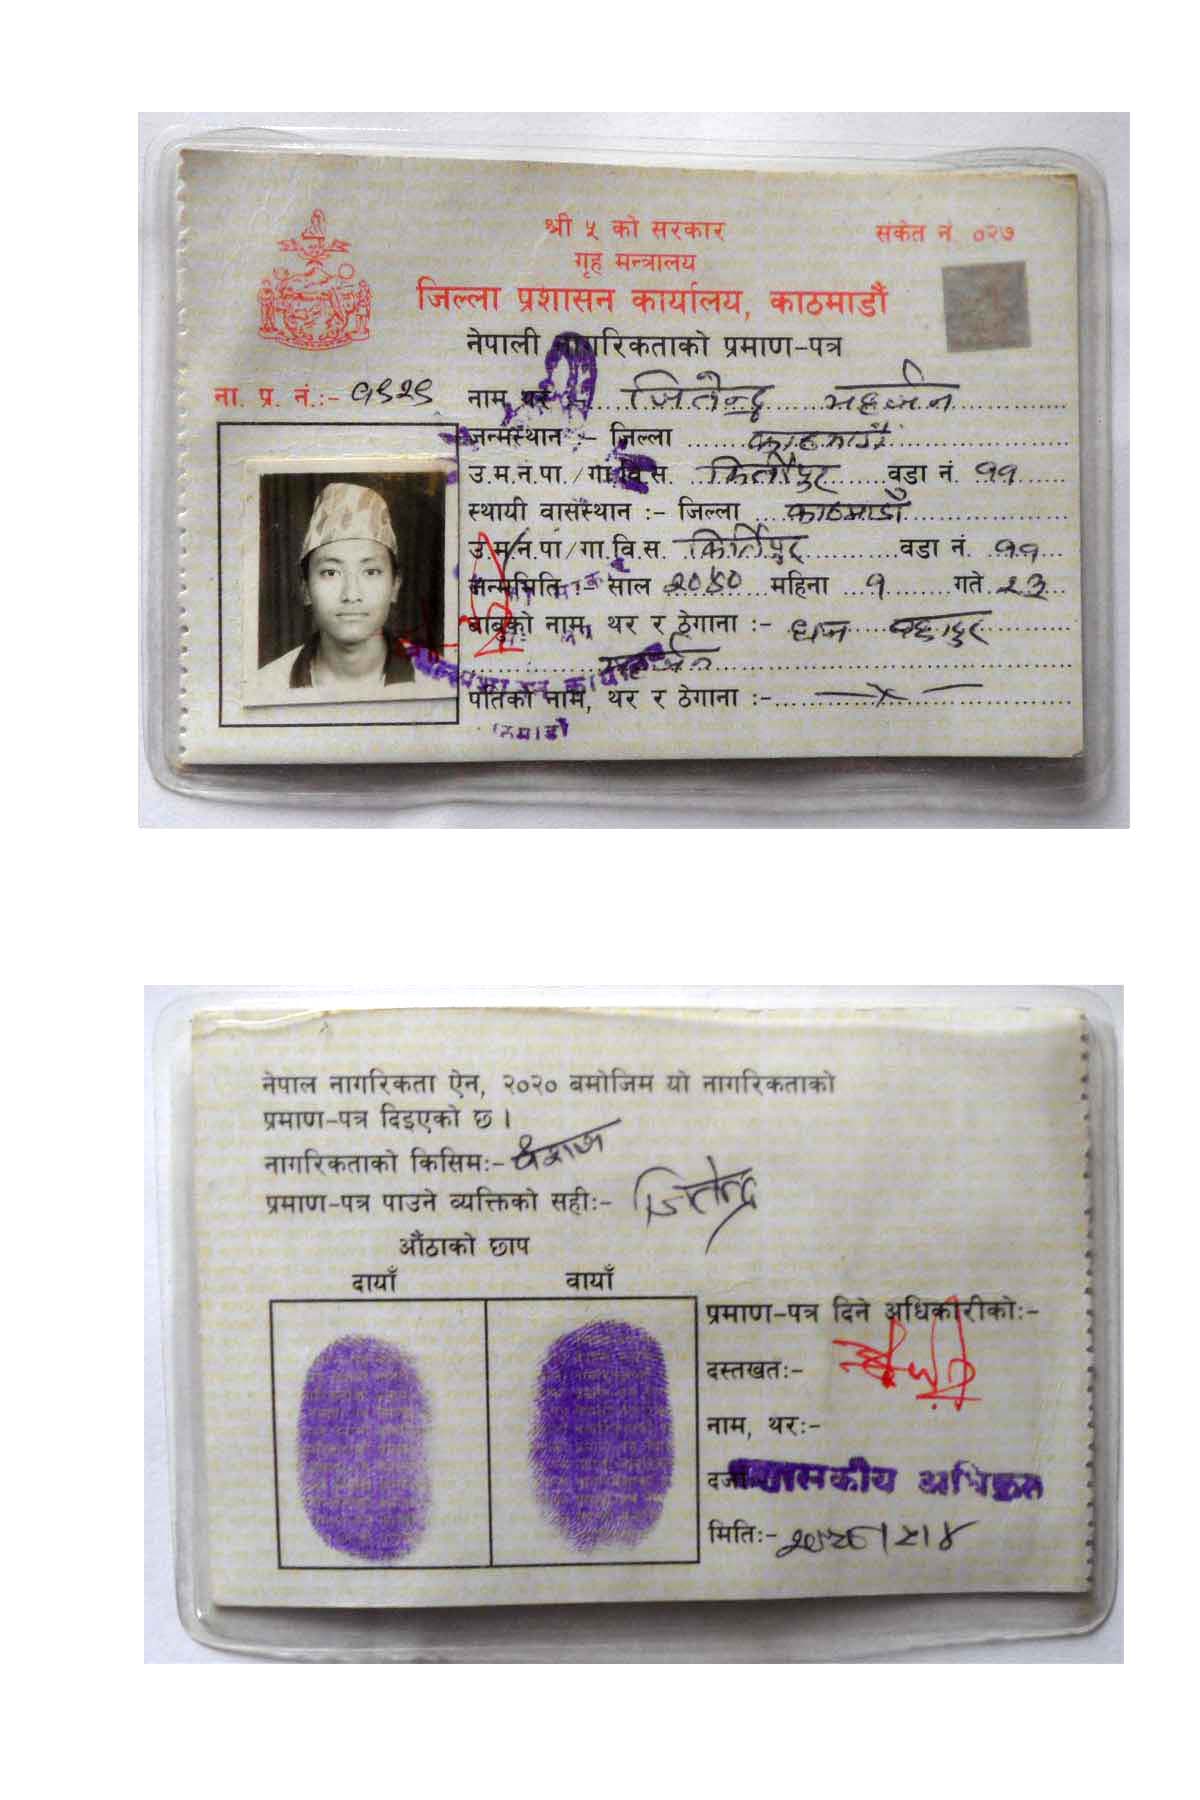 श्री ५ को सरकार
गृह मन्त्रालय
संकेत नं. ०२७
जिल्ला प्रशासन कार्यालय, काठमाडौं
नेपाली नागरिकताको प्रमाण-पत्र
ना. प्र. नं.:-
नाम थर :- जितेन्द्र महर्जन
जन्मस्थान :- जिल्ला काठमाडौं
उ.म.न.पा./गा.वि.स. किर्तीपुर वडा नं. ११
स्थायी वासस्थान :- जिल्ला काठमाडौं
उ.म.न.पा/गा.वि.स. किर्तिपुर वडा नं. ११
जन्ममिति :- साल २०४० महिना १ गते २३
बाबुको नाम, थर र ठेगाना :- धन बहादुर
महर्जन
पतिको नाम, थर र ठेगाना :-
नेपाल नागरिकता ऐन, २०२० बमोजिम यो नागरिकताको
प्रमाण-पत्र दिइएको छ ।
नागरिकताको किसिम:- वंशज
प्रमाण-पत्र पाउने व्यक्तिको सही:- जितेन्द्र
औंठाको छाप
दायाँ वायाँ
प्रमाण-पत्र दिने अधिकारीको:-
दस्तखत:-
नाम, थर:-
दर्जा शासकीय अधिकृत
मिति:-